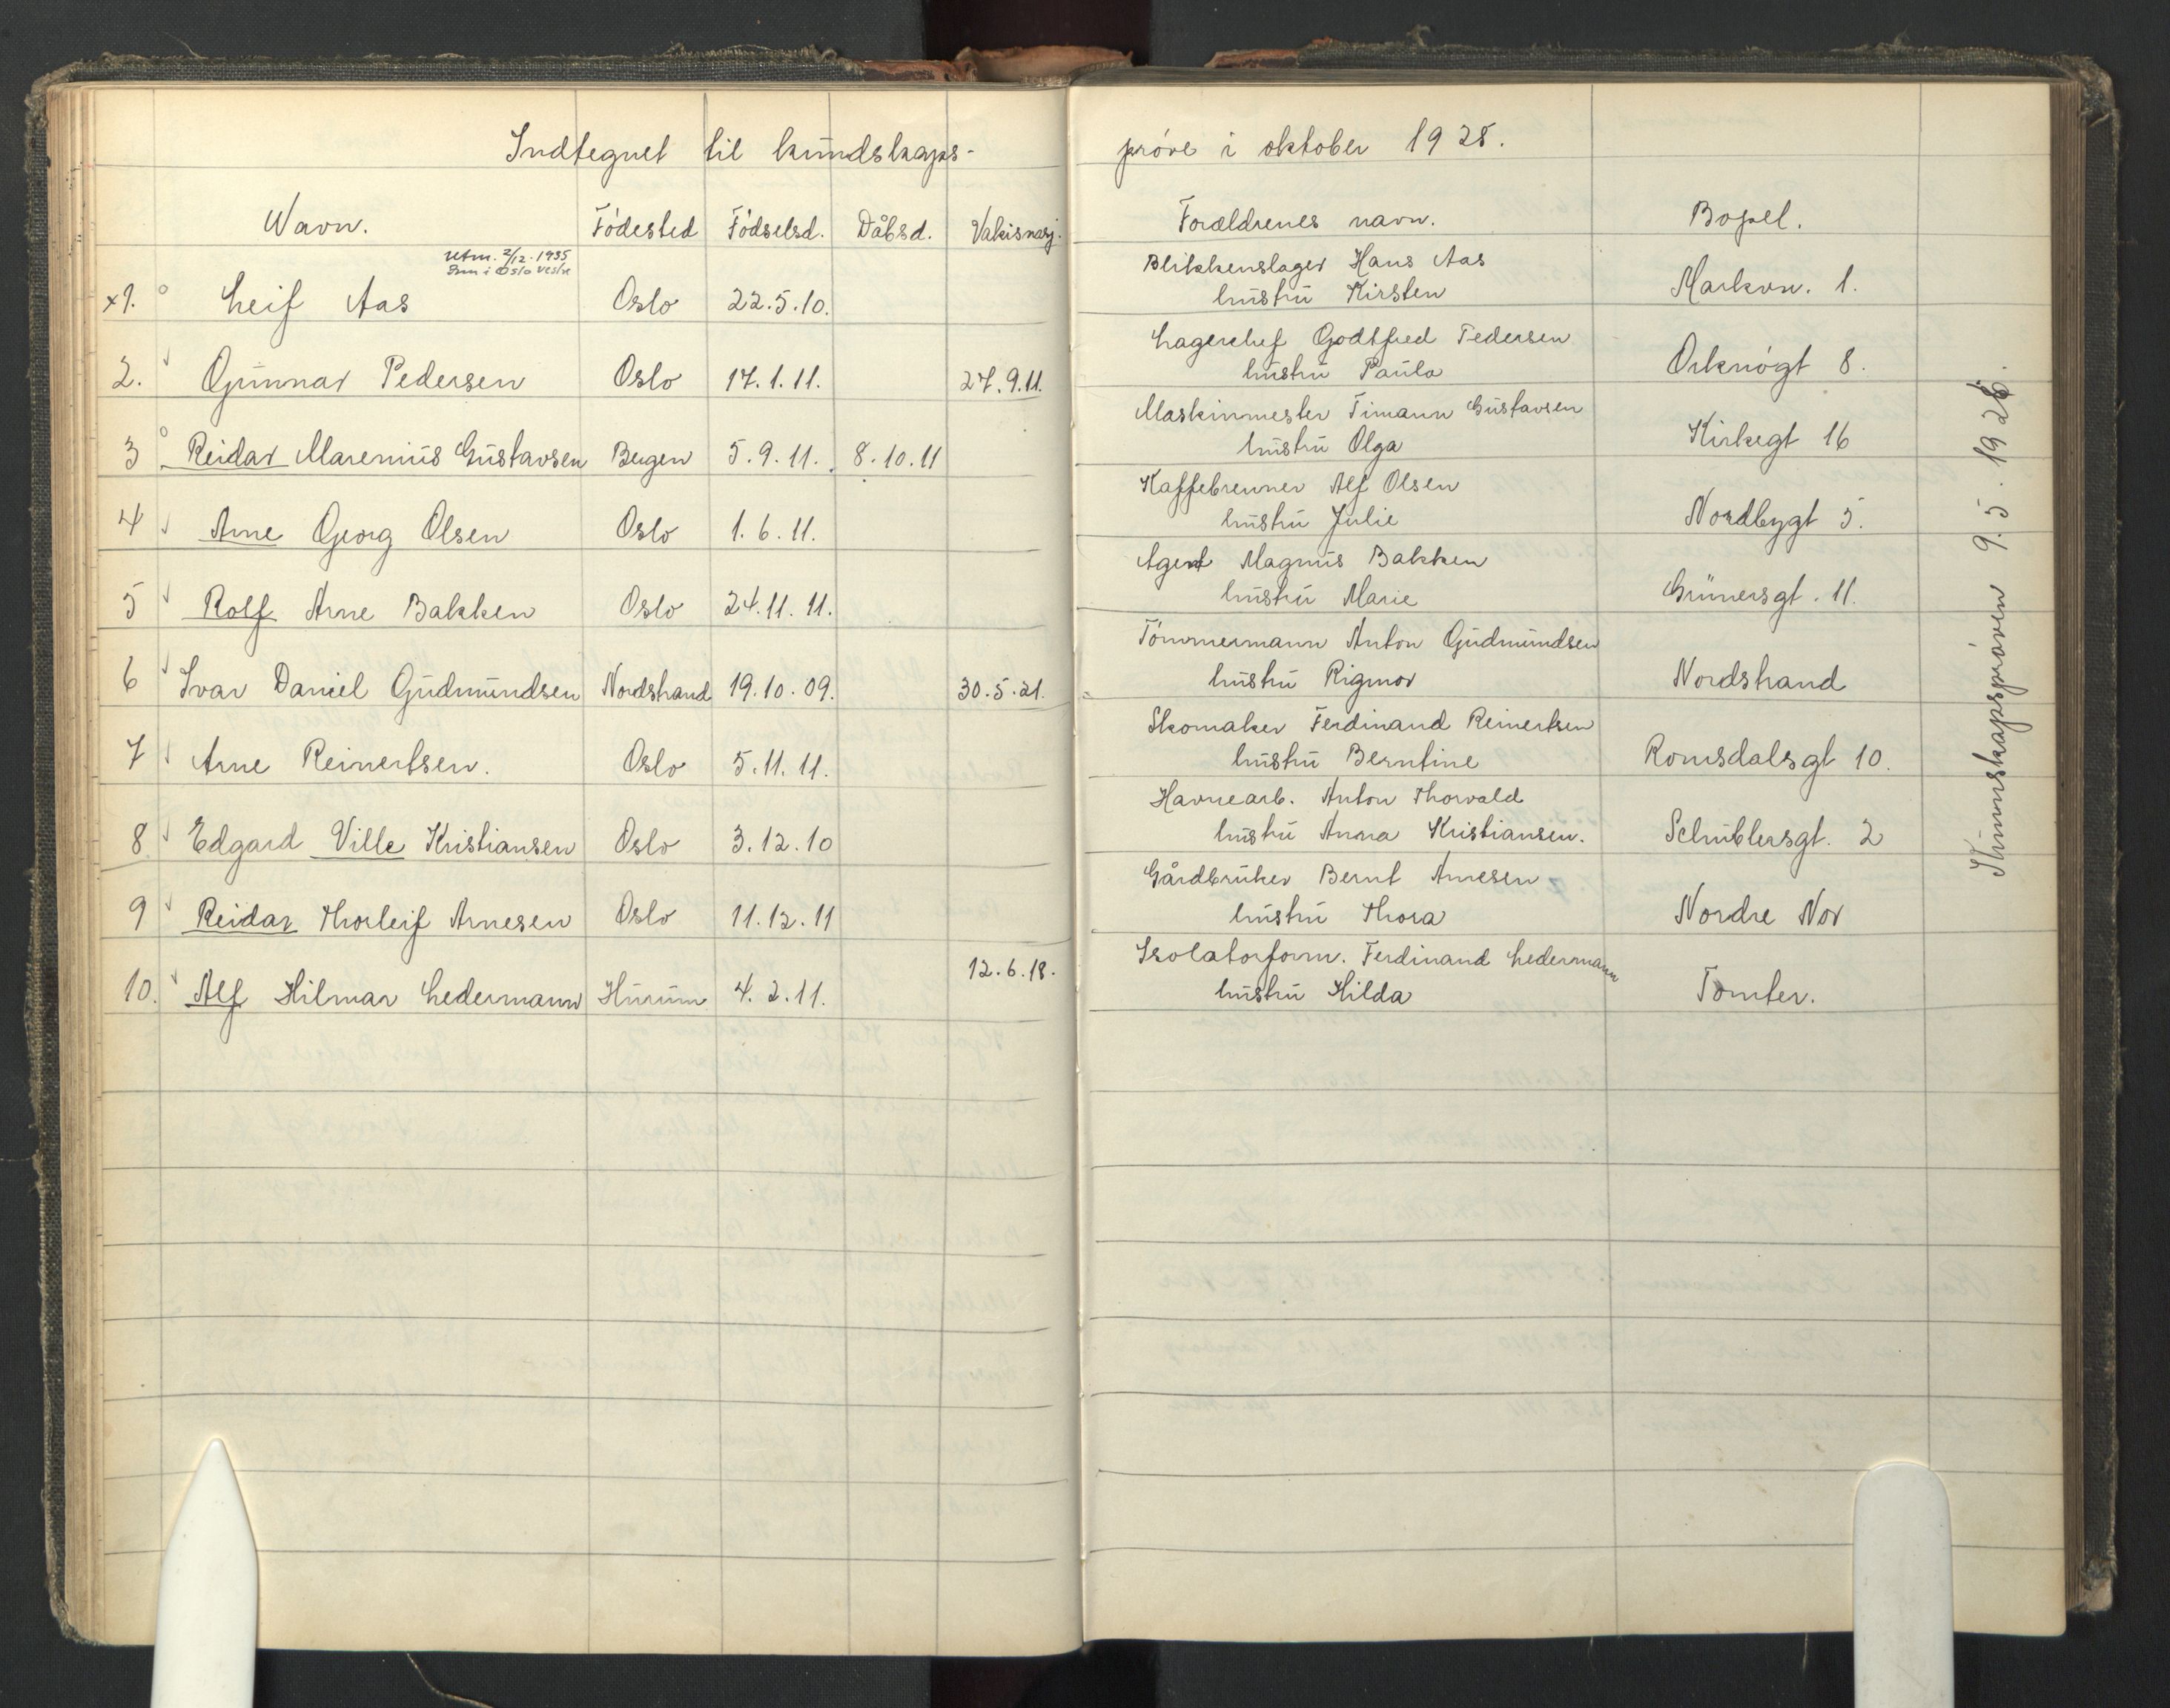 Indtegnet til kundskaps-
prøve i oktober 1925.
Navn. Fødested Fødselsd. Dåbsd. Vaksinasj. Forældrenes navn. Bopel.
utm. 2/12.1935
Inn i Oslo vestre
x1. Leif Aas Oslo 22.5.10. Blikkenslager Hans Aas
hustru Kirsten Markvn. 1.
2. Gunnar Pedersen Oslo 17.1.11. 27.9.11. Lagerchef Godtfred Pedersen
hustru Paula Orknøgt 8.
3 Reidar Marenius Gustavsen Bergen 5.9.11. 8.10.11 Maskinmester Timann Gustavsen
hustru Olga Kirkegt 16
4 Arne Georg Olsen Oslo 1.6.11. Kaffebrenner Alf Olsen
hustru Julie Nordbygt 5.
5 Rolf Arne Bakken Oslo 24.11.11. Agent Magnus Bakken
hustru Marie Grünersgt. 11.
6 Ivar Daniel Gudmundsen Nordstrand 19.10.09. 30.5.21. Tömmermann Anton Gudmundsen
hustru Rigmor Nordstrand
7 Arne Reinertsen. Oslo 5.11.11. Skomaker Ferdinand Reinertsen
hustru Berntine Romsdalsgt 10.
8 Edgard Ville Kristiansen Oslo 3.12.10 Havnearb. Anton Thorvald
hustru Anna Kristiansen. Schüblersgt. 2
9 Reidar Thorleif Arnesen Oslo 11.12.11 Gårdbruker Bernt Arnesen
hustru Thora Nordre Nor
10. Alf Hilmar Ledermann Hurum 4.2.11. 12.6.18. Isolatorform. Ferdinand Ledermann
hustru Hilda Tomter.
Kunnskapsprøven 9.5.1926.